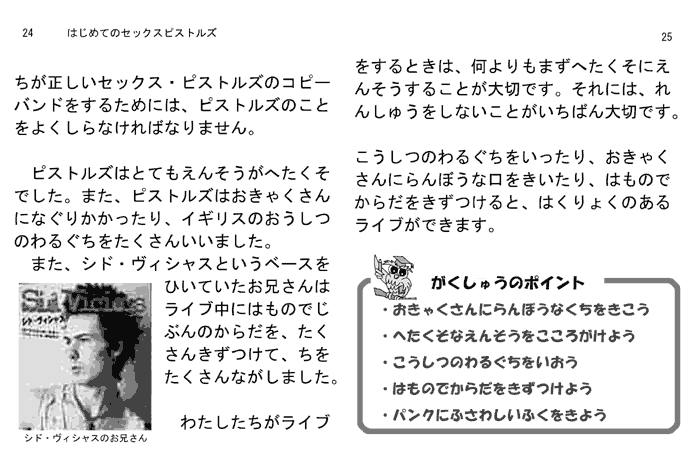 24 はじめてのセックスピストルズ
ちが正しいセックス・ピストルズのコピー
バンドをするためには、ピストルズのこと
をよくしらなければなりません。
ピストルズはとてもえんそうがへたくそ
でした。また、ピストルズはおきゃくさん
になぐりかかったり、イギリスのおうしつ
のわるぐちをたくさんいいました。
また、シド・ヴィシャスというベースを
ひいていたお兄さんは
ライブ中にはものでじ
ぶんのからだを、たく
さんきずつけて、ちを
たくさんながしました。
Sid Vicious
シド・ヴィシャス
シド・ヴィシャスのお兄さん
わたしたちがライブ
25
をするときは、何よりもまずへたくそにえ
んそうすることが大切です。それには、れ
んしゅうをしないことがいちばん大切です。
こうしつのわるぐちをいったり、おきゃく
さんにらんぼうな口をきいたり、はもので
からだをきずつけると、はくりょくのある
ライブができます。
がくしゅうのポイント
・おきゃくさんにらんぼうなくちをきこう
・へたくそなえんそうをこころがけよう
・こうしつのわるぐちをいおう
・はものでからだをきずつけよう
・パンクにふさわしいふくをきよう